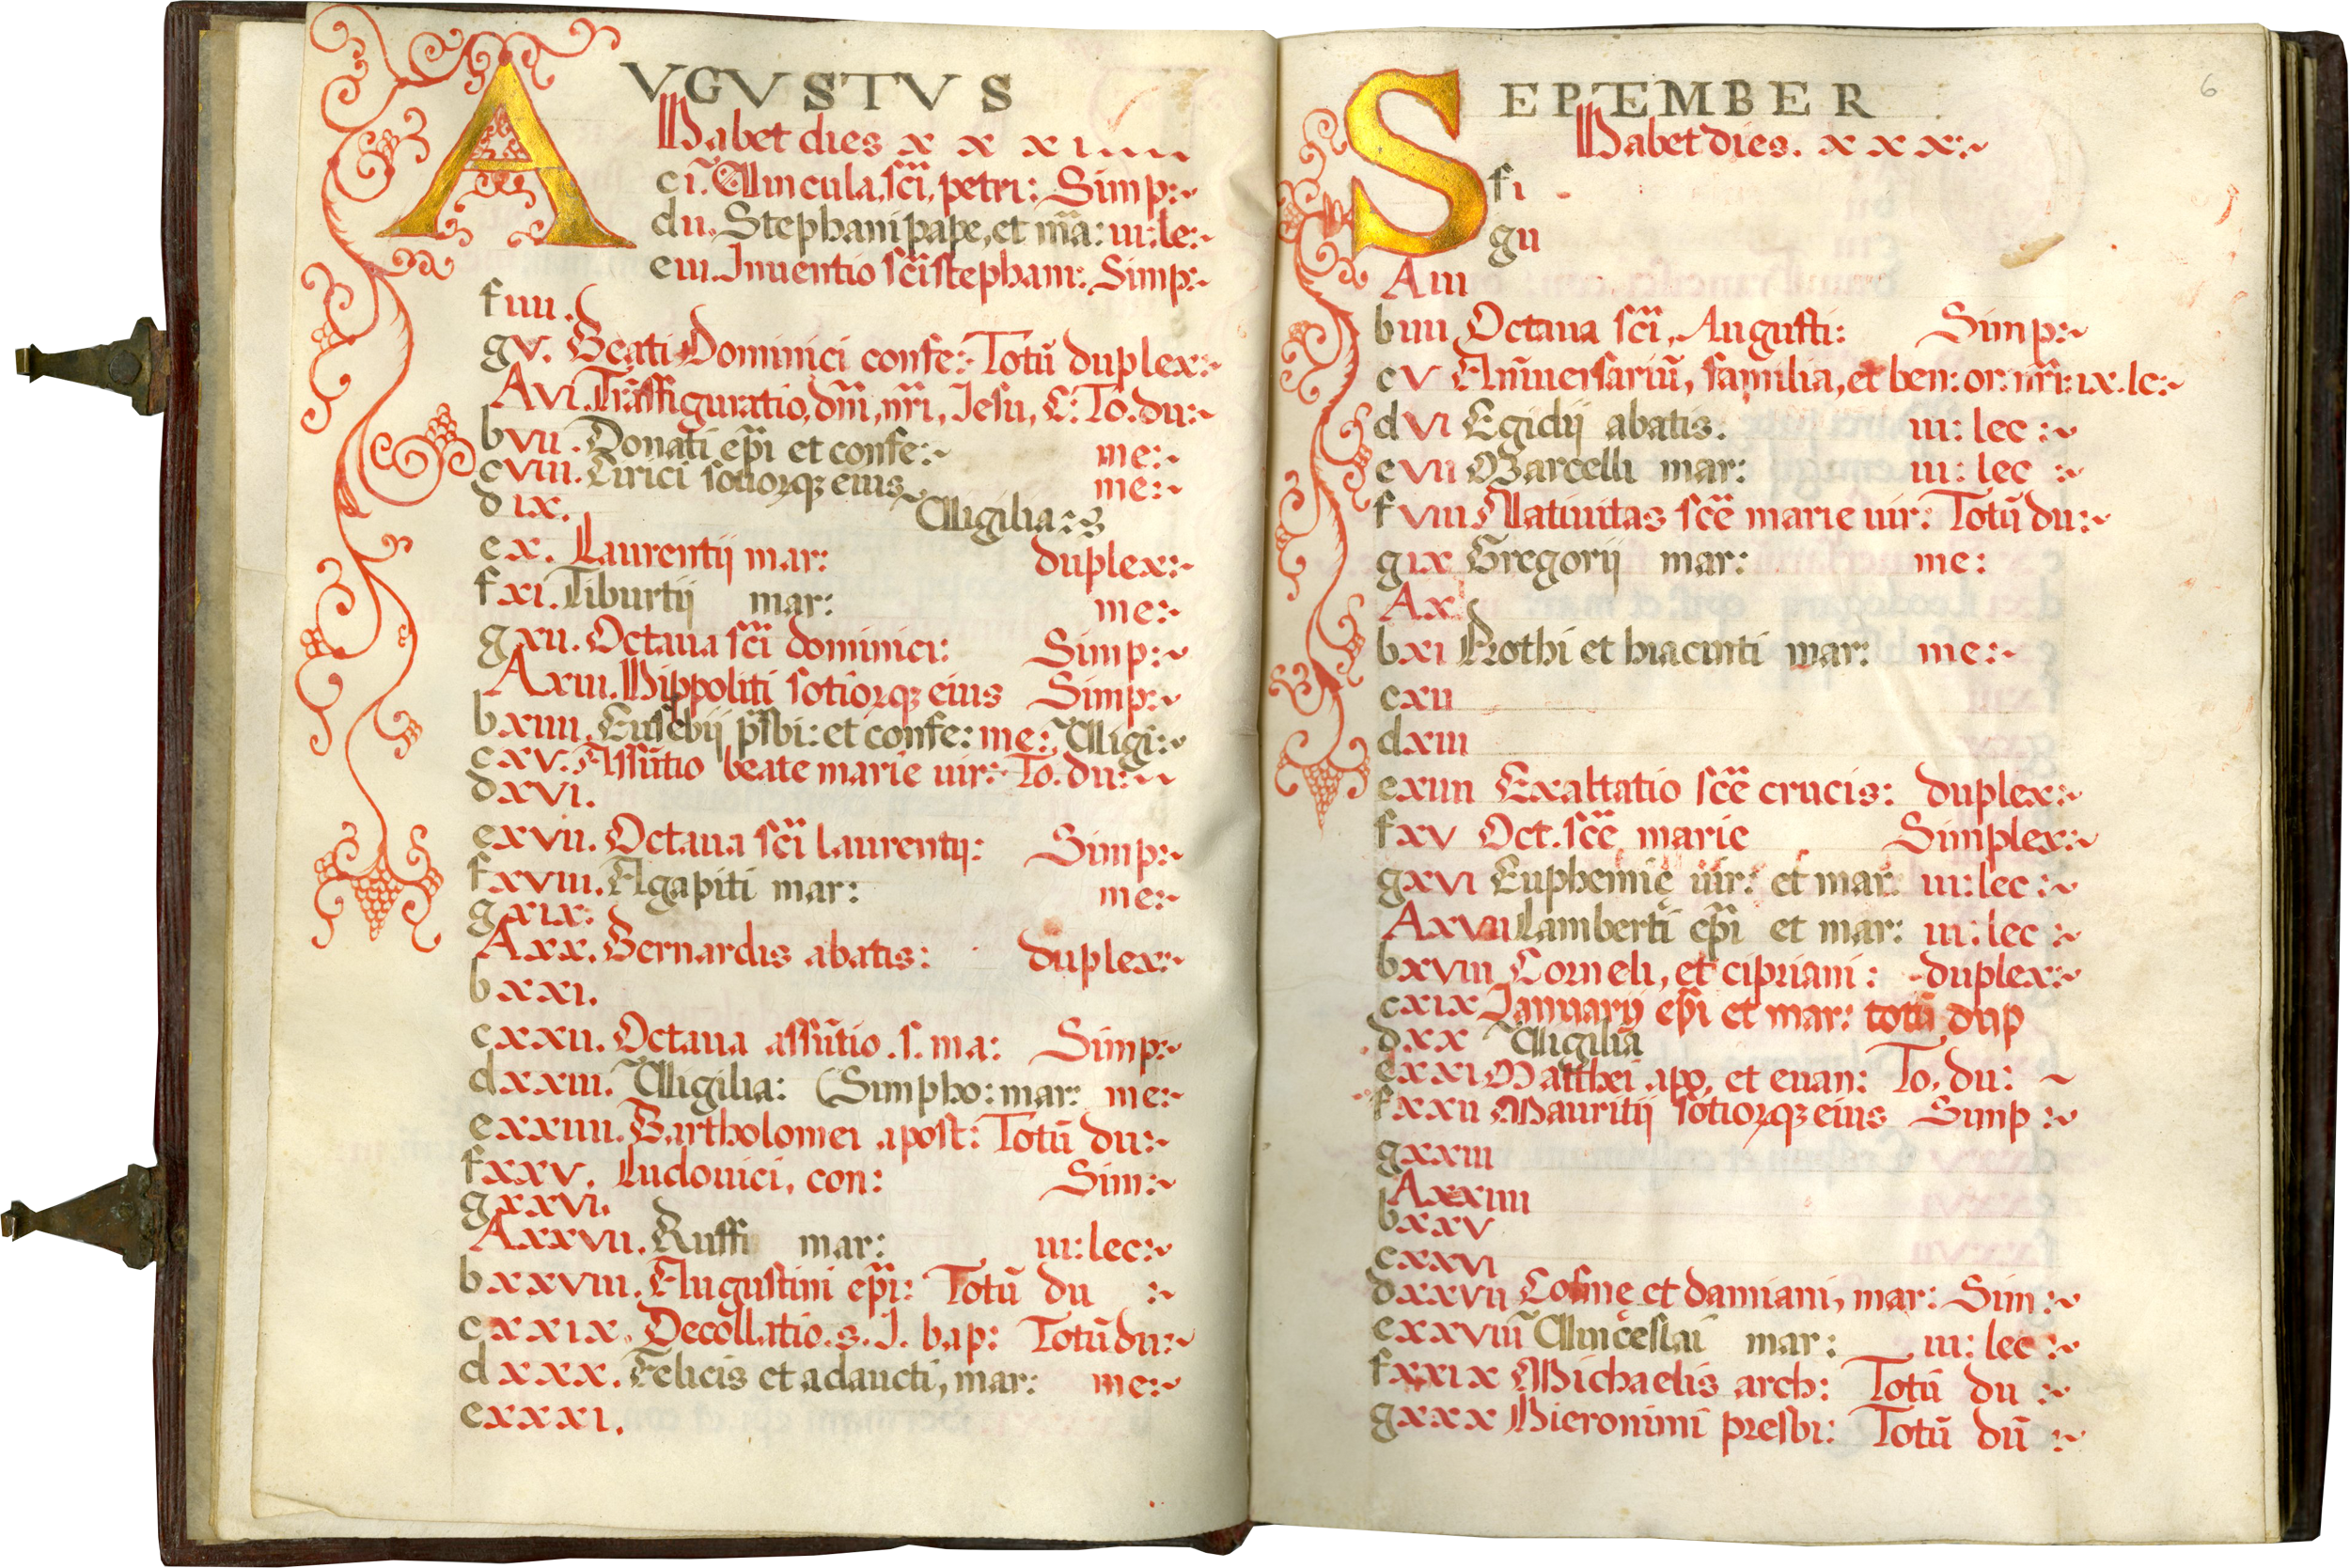 AVGVSTVS
Habet dies x x x i
c i. Vincula, sci, petri: Simp:~
d ii. Stephani pape, et ma: iii: le:~
e iii. Inuentio sci stephani: Simp:~
f iiii.
g v. Beati Dominici confe: Totũ duplex:~
A vi. Trãsfiguratio, dñi, nri, Iesu, C: To. du:~
b vii. Donati epi et confe:~ me:~
c viii. Cirici sotiorꝗ eius me:~
d ix. Vigilia:~
e x. Laurentij mar: duplex:~
f xi. Tiburtij mar: me:~
g xii. Octaua sci dominici: Simp:~
A xiii. Hippoliti sotiorꝗ eius Simp:~
b xiiii. Eusebij psbi: et confe: me: Vigi:~
c xv. Assũtio beate marie uir: To. du:~
d xvi.
e xvii. Octaua sci laurentij: Simp:~
f xviii. Agapiti mar: me:~
g xix:
A xx. Bernardis abatis: duplex:~
b xxi.
c xxii. Octaua assũtio. s. ma: Simp:~
d xxiii. Vigilia: (Simpho: mar: me:~
e xxiiii. Bartholomei apost: Totũ du:~
f xxv. Ludouici, con: Sim:~
g xxvi.
A xxvii. Ruffi mar: iii: lec:~
b xxviii. Augustini epi: Totũ du :~
c xxix. Decollatio. s. J. bap: Totũ du:~
d xxx. Felicis et adaucti, mar: me:~
e xxxi.
6
SEPTEMBER
Habet dies. x x x:~
f i
g ii
A iii
b iiii Octaua sci, Augusti: Simp:~
c v Anĩuersariũ, familia, et ben: or: nri: ix. lc:~
d vi Egidij abatis: iii: lec:~
e vii Marcelli mar: iii: lec:~
f viii Natiuitas sce marie uir: Totũ du:~
g ix Gregorij mar: me:
A x
b xi Prothi et hiacinti mar: me:~
c xii
d xiii
e xiiii Exaltatio sce crucis: duplex:~
f xv Oct. sce marie Simplex:~
g xvi Euphemię uir: et mar: iii: lec:~
A xvii Lamberti epi et mar: iii: lec:~
b xviii Corneli, et cipriani: duplex:~
c xix Ianuarij epi et mar: totũ dup
d xx Vigilia
e xxi Matthei apo, et euan: To, du: ~
f xxii Mauritij sotiorꝗ eius Simp:~
g xxiii
A xxiiii
b xxv
c xxvi
d xxvii Cosmę et damiani, mar: Sim:~
e xxviii Vinceslai mar: iii: lec:~
f xxix Michaelis arch: Totũ du:~
g xxx Hieronimi presbi: Totũ dũ:~